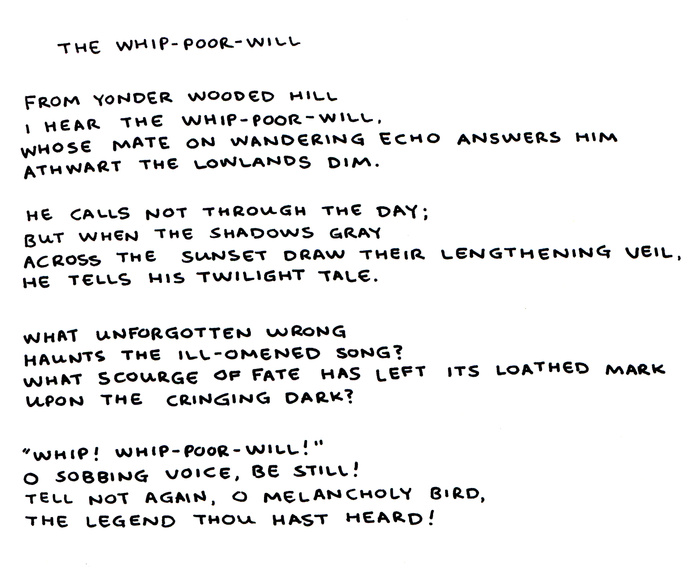 THE WHIP-POOR-WILL
FROM YONDER WOODED HILL
I HEAR THE WHIP-POOR-WILL,
WHOSE MATE ON WANDERING ECHO ANSWERS HIM
ATHWART THE LOWLANDS DIM.
HE CALLS NOT THROUGH THE DAY;
BUT WHEN THE SHADOWS GRAY
ACROSS THE SUNSET DRAW THEIR LENGTHENING VEIL,
HE TELLS HIS TWILIGHT TALE.
WHAT UNFORGOTTEN WRONG
HAUNTS THE ILL-OMENED SONG?
WHAT SCOURGE OF FATE HAS LEFT ITS LOATHED MARK
UPON THE CRINGING DARK?
"WHIP! WHIP-POOR-WILL!"
O SOBBING VOICE, BE STILL!
TELL NOT AGAIN, O MELANCHOLY BIRD,
THE LEGEND THOU HAST HEARD!